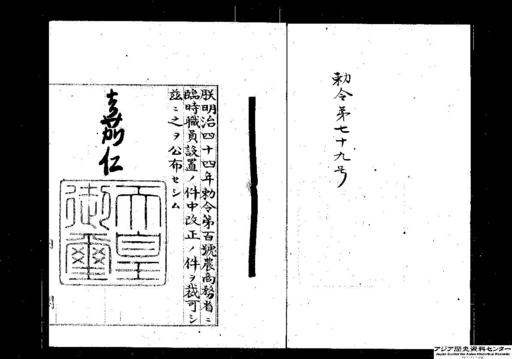 勅令第七十九号
朕明治四十四年勅令第百號農商務省ニ
臨時職員設置ノ件中改正ノ件ヲ裁可シ
茲ニ之ヲ公布セシム
嘉仁
天皇
御璽
アジア歴史資料センター
Japan Center for Asian Historical Records